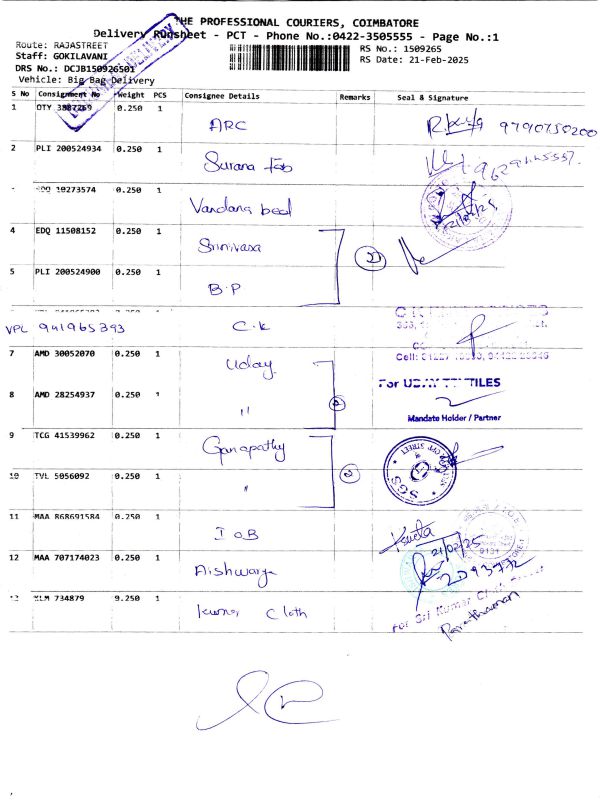 THE PROFESSIONAL COURIERS, COIMBATORE
Delivery RUnsheet - PCT - Phone No.:0422-3505555 - Page No.:1
Route: RAJASTREET
Staff: GOKILAVANI
DRS No.: DCJB150926501
Vehicle: Big Bag Delivery
RS No.: 1509265
RS Date: 21-Feb-2025
S No Consignment No Weight PCS Consignee Details Remarks Seal & Signature
1 OTY 3887269 0.250 1 ARC 9790750200
2 PLI 200524934 0.250 1 Surana Fab
EDQ 10273574 0.250 1 Vandana bed 21/02/25
4 EDQ 11508152 0.250 1 Srinivasa
5 PLI 200524900 0.250 1 B.P
0.250 1
VPL 941965393 C.K
Cell:
7 AMD 30052070 0.250 1 Uday
For UDAY TILES
8 AMD 28254937 0.250 1 "
Mandate Holder / Partner
9 TCG 41539962 0.250 1 Ganapathy
SGS
10 TVL 5056092 0.250 1 "
11 MAA 868691584 0.250 1 IOB
21/02/25
12 MAA 707174023 0.250 1 Aishwarya
2093772
13 KLM 734879 9.250 1 Kumar Cloth
For Sri Kumar